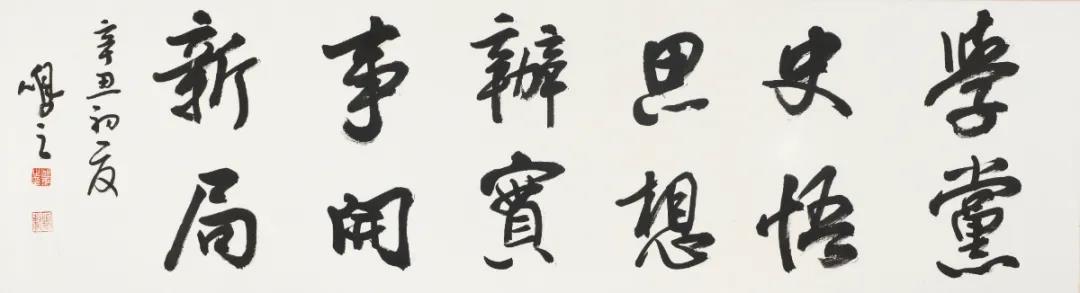 學黨
史悟
思想
辦實
事開
新局
辛丑初夏